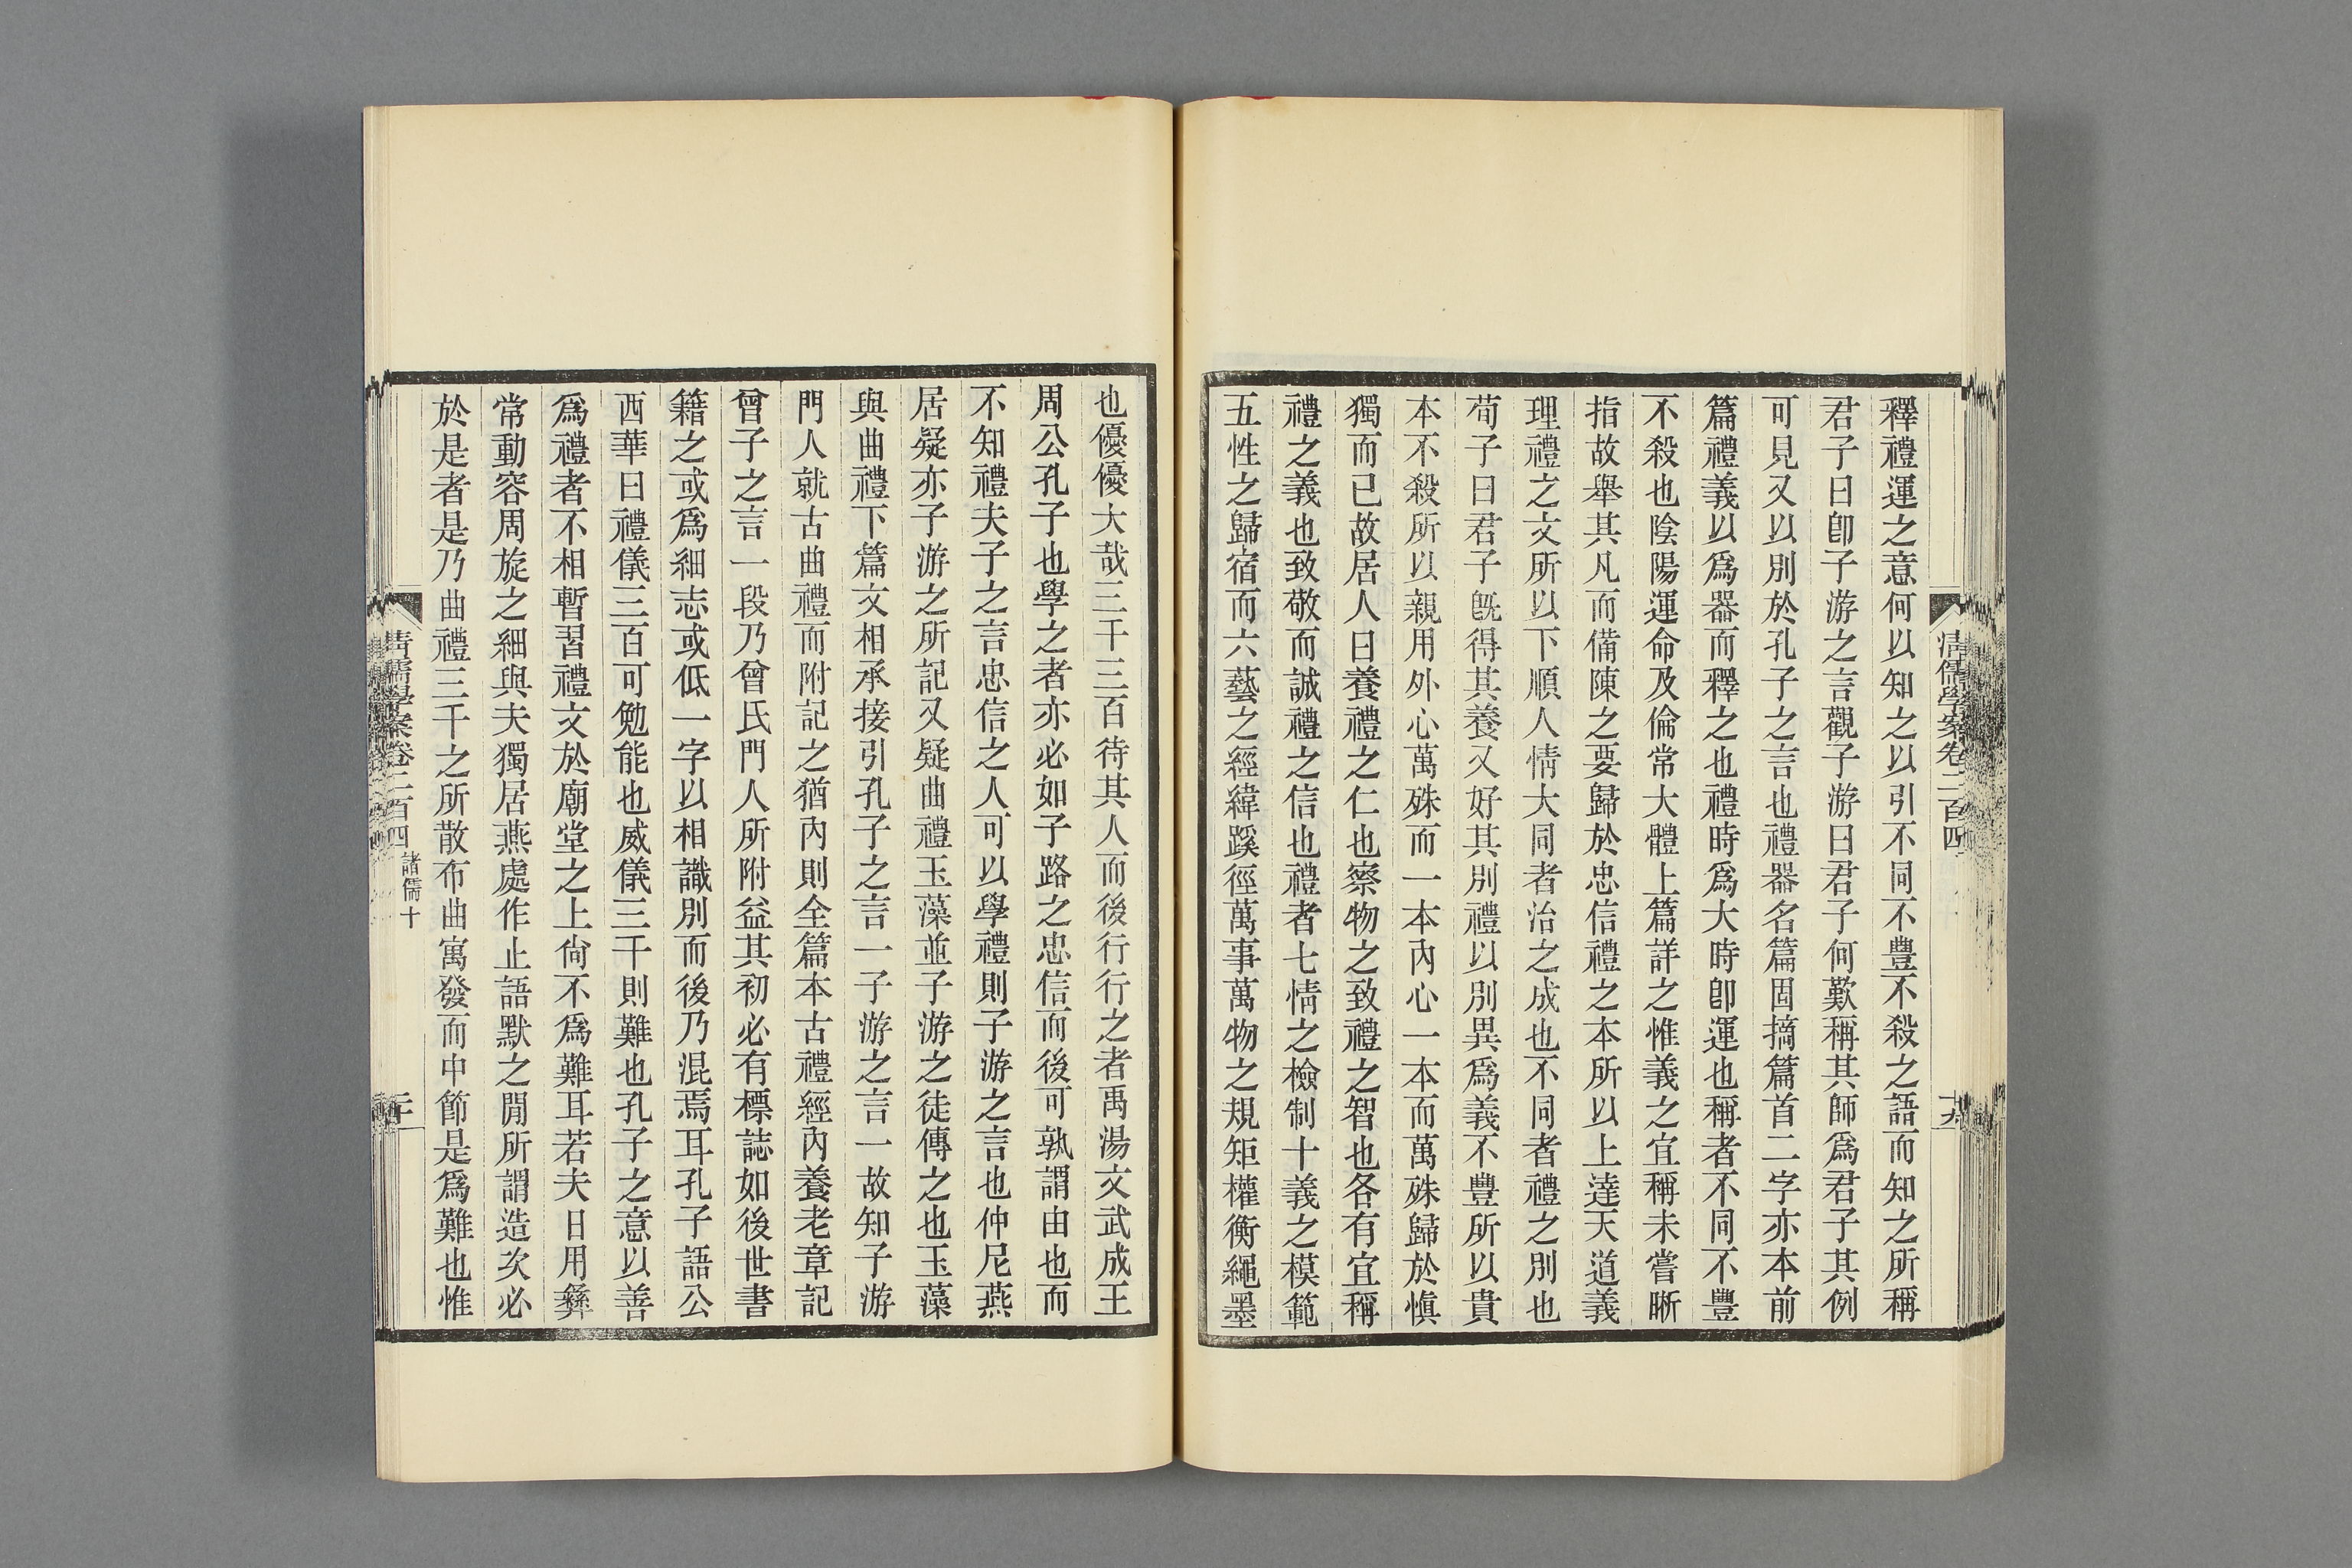 清儒學案卷二百四
十九
釋禮運之意何以知之以引不同不豐不殺之語而知之所稱
君子曰卽子游之言觀子游曰君子何歎稱其師爲君子其例
可見又以別於孔子之言也禮器名篇固摘篇首二字亦本前
篇禮義以爲器而釋之也禮時爲大時卽運也稱者不同不豐
不殺也陰陽運命及倫常大體上篇詳之惟義之宜稱未嘗晰
指故舉其凡而備陳之要歸於忠信禮之本所以上達天道義
理禮之文所以下順人情大同者治之成也不同者禮之別也
荀子曰君子旣得其養又好其別禮以別異爲義不豐所以貴
本不殺所以親用外心萬殊而一本內心一本而萬殊歸於愼
獨而已故居人曰養禮之仁也察物之致禮之智也各有宜稱
禮之義也致敬而誠禮之信也禮者七情之檢制十義之模範
五性之歸宿而六藝之經緯蹊徑萬事萬物之規矩權衡繩墨
也優優大哉三千三百待其人而後行行之者禹湯文武成王
周公孔子也學之者亦必如子路之忠信而後可孰謂由也而
不知禮夫子之言忠信之人可以學禮則子游之言也仲尼燕
居疑亦子游之所記又疑曲禮玉藻並子游之徒傳之也玉藻
與曲禮下篇文相承接引孔子之言一子游之言一故知子游
門人就古曲禮而附記之猶內則全篇本古禮經內養老章記
曾子之言一段乃曾氏門人所附益其初必有標誌如後世書
籍之或爲細志或低一字以相識別而後乃混焉耳孔子語公
西華曰禮儀三百可勉能也威儀三千則難也孔子之意以善
爲禮者不相暫習禮文於廟堂之上尙不爲難耳若夫日用彝
常動容周旋之細與夫獨居燕處作止語默之閒所謂造次必
於是者是乃曲禮三千之所散布曲寓發而中節是爲難也惟
清儒學案卷二百四 諸儒十